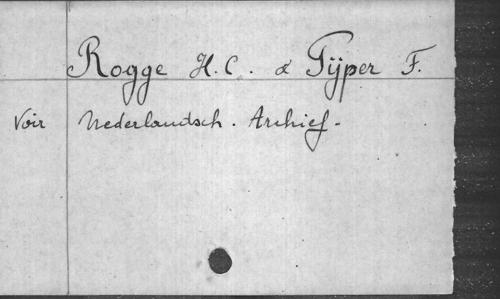 Rogge H. C. & Pÿper F.
Voir Nederlandsch. Archief -